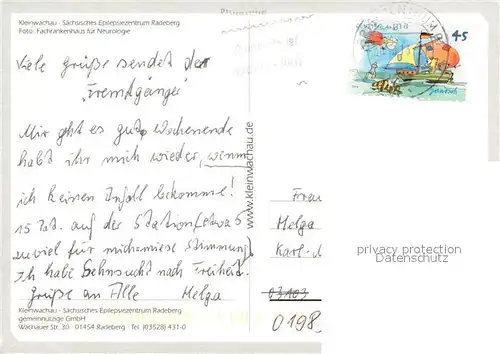 Kleinwachau - Sächsisches Epilepsiezentrum Radeberg
Foto: Fachkrankenhaus für Neurologie
45
janosch
Viele Grüße sendet der
"Fremdgänger"
Mir geht es gut, Wochenende
habt ihr mich wieder, wenn
ich keinen Infall bekomme!
15 Pat. auf der Station (etwas
zuviel für mich-miese Stimmung)
Ich habe Sehnsucht nach Freiheit.
Grüße an Alle Helga
www.kleinwachau.de
Frau
Helga
Karl-M
privacy protection
Datenschutz
03103
0198
Kleinwachau - Sächsisches Epilepsiezentrum Radeberg
gemeinnützige GmbH
Wachauer Str. 30 · 01454 Radeberg · Tel. (03528) 431-0